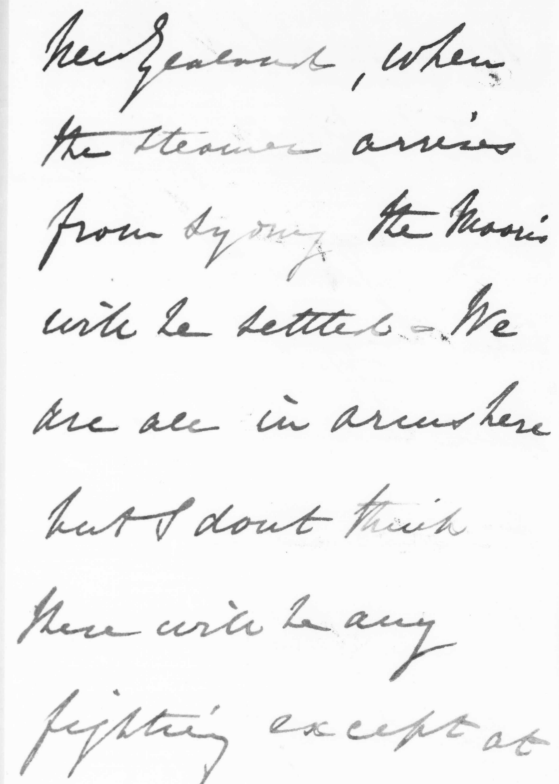 New Zealand, when
the steamer arrives
from Sydney the Maoris
will be settled - We
are all in arms here
but I dont think
there will be any
fighting except at